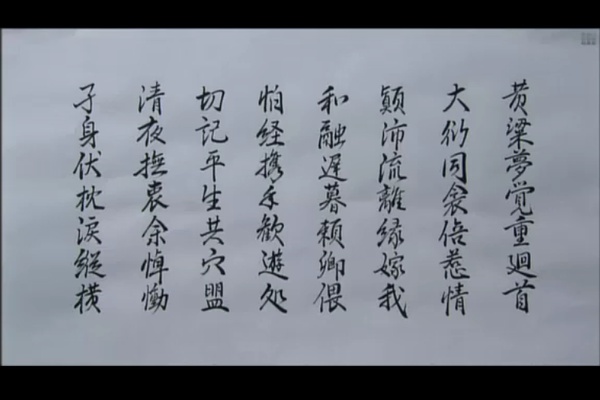 黄粱夢覚重廻首
大衍同衾倍惹情
顛沛流離縁嫁我
和融遅暮頼卿偎
怕経携手歓遊処
切記平生共穴盟
清夜撫衷余悼慟
孑身伏枕涙縦横